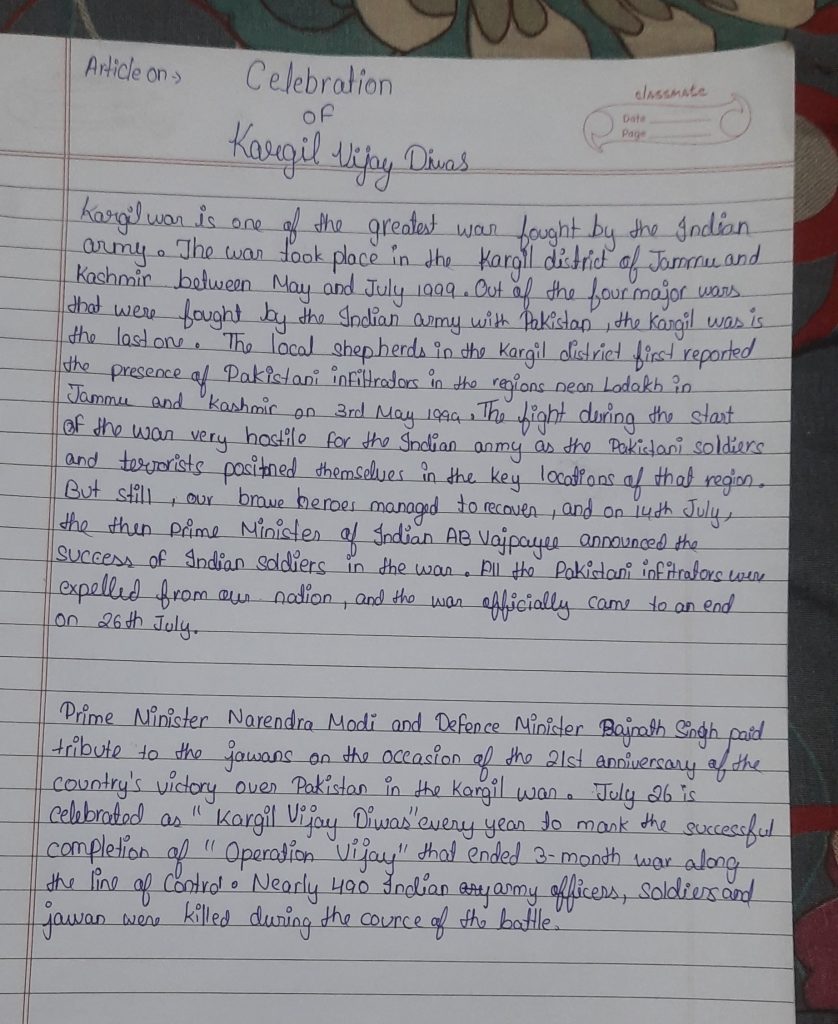 Article on →
Celebration
of
Kargil Vijay Diwas
classmate
Date
Page
Kargil war is one of the greatest war fought by the Indian
army. The war took place in the Kargil district of Jammu and
Kashmir between May and July 1999. Out of the four major wars
that were fought by the Indian army with Pakistan, the Kargil was is
the last one. The local shepherds in the Kargil district first reported
the presence of Pakistani infiltrators in the regions near Ladakh in
Jammu and Kashmir on 3rd May 1999. The fight during the start
of the war very hostile for the Indian army as the Pakistani soldiers
and terrorists positned themselves in the key locations of that region.
But still, our brave heroes managed to recover, and on 14th July,
the then Prime Minister of Indian AB Vajpayee announced the
success of Indian soldiers in the war. All the Pakistani infitrators were
expelled from our nation, and the war officially came to an end
on 26th July.
Prime Minister Narendra Modi and Defence Minister Rajnath Singh paid
tribute to the jawans on the occasion of the 21st anniversary of the
country's victory over Pakistan in the Kargil war. July 26 is
celebrated as "Kargil Vijay Diwas" every year to mark the successful
completion of "Operation Vijay" that ended 3-month war along
the line of Control. Nearly 490 Indian army officers, soldiers and
jawan were killed during the cource of the battle.